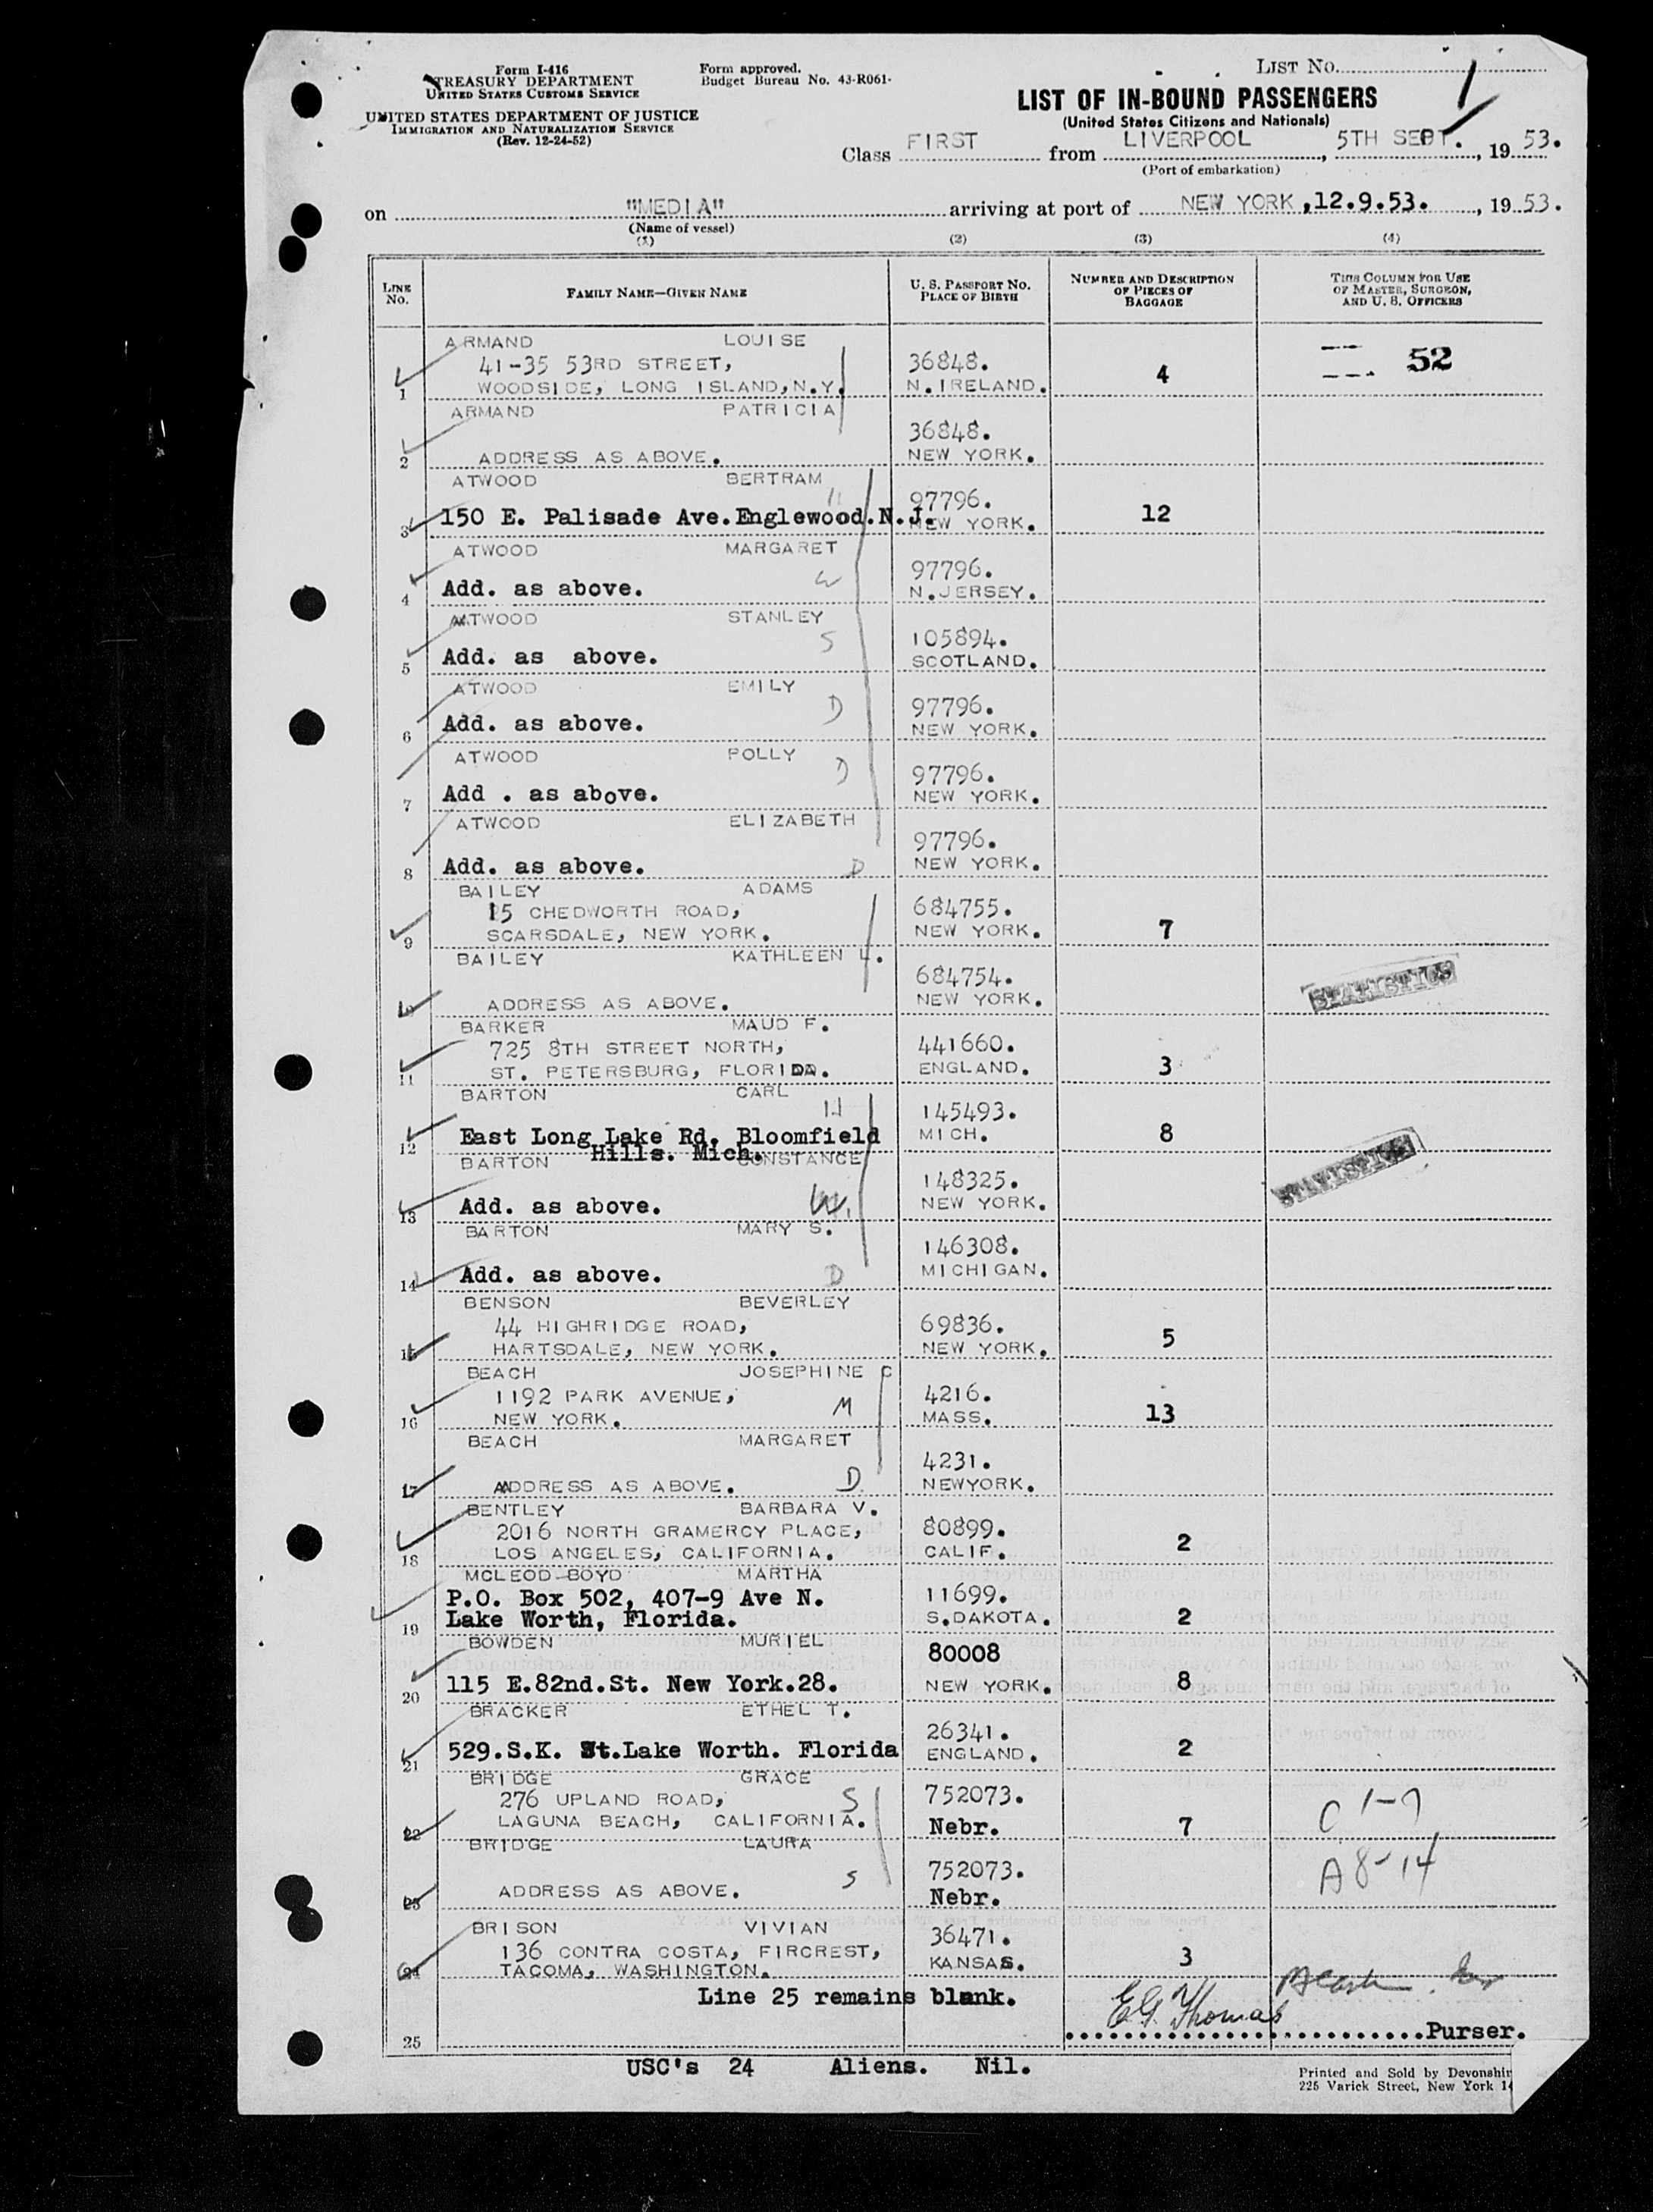 Form I-416
TREASURY DEPARTMENT
UNITED STATES CUSTOMS SERVICE
UNITED STATES DEPARTMENT OF JUSTICE
IMMIGRATION AND NATURALIZATION SERVICE
(Rev. 12-24-52)
Form approved.
Budget Bureau No. 43-R061-
LIST No. 1
LIST OF IN-BOUND PASSENGERS
(United States Citizens and Nationals)
Class FIRST from LIVERPOOL, 5TH SEPT., 19 53.
(Port of embarkation)
on "MEDIA" arriving at port of NEW YORK, 12.9.53., 19 53.
(Name of vessel)
(1) (2) (3) (4)
LINE No. FAMILY NAME—GIVEN NAME U. S. PASSPORT No. PLACE OF BIRTH NUMBER AND DESCRIPTION OF PIECES OF BAGGAGE THIS COLUMN FOR USE OF MASTER, SURGEON, AND U. S. OFFICERS
ARMAND LOUISE
41-35 53RD STREET, 36848. 52
1 WOODSIDE, LONG ISLAND, N.Y. N. IRELAND. 4
ARMAND PATRICIA
36848.
2 ADDRESS AS ABOVE. NEW YORK.
ATWOOD BERTRAM
97796.
3 150 E. Palisade Ave. Englewood. N.J. NEW YORK. 12
ATWOOD MARGARET
W 97796.
4 Add. as above. N. JERSEY.
ATWOOD STANLEY
S 105894.
5 Add. as above. SCOTLAND.
ATWOOD EMILY
D 97796.
6 Add. as above. NEW YORK.
ATWOOD POLLY
D 97796.
7 Add . as above. NEW YORK.
ATWOOD ELIZABETH
97796.
8 Add. as above. D NEW YORK.
BAILEY ADAMS
15 CHEDWORTH ROAD, 684755.
9 SCARSDALE, NEW YORK. NEW YORK. 7
BAILEY KATHLEEN L.
684754. STATISTICS
10 ADDRESS AS ABOVE. NEW YORK.
BARKER MAUD F.
725 8TH STREET NORTH, 441660.
11 ST. PETERSBURG, FLORIDA. ENGLAND. 3
BARTON CARL
H 145493.
12 East Long Lake Rd. Bloomfield MICH. 8
Hills. Mich.
BARTON CONSTANCE
148325. STATISTICS
13 Add. as above. W. NEW YORK.
BARTON MARY S.
146308.
14 Add. as above. D MICHIGAN.
BENSON BEVERLEY
44 HIGHRIDGE ROAD, 69836.
15 HARTSDALE, NEW YORK. NEW YORK. 5
BEACH JOSEPHINE C
1192 PARK AVENUE, M 4216.
16 NEW YORK. MASS. 13
BEACH MARGARET
4231.
17 ADDRESS AS ABOVE. D. NEWYORK.
BENTLEY BARBARA V.
2016 NORTH GRAMERCY PLACE, 80899.
18 LOS ANGELES, CALIFORNIA. CALIF. 2
MCLEOD-BOYD MARTHA
P.O. Box 502, 407-9 Ave N. 11699.
19 Lake Worth, Florida. S. DAKOTA. 2
BOWDEN MURIEL
80008
20 115 E.82nd.St. New York.28. NEW YORK. 8
BRACKER ETHEL T.
26341.
21 529.S.K. St.Lake Worth. Florida ENGLAND. 2
BRIDGE GRACE
276 UPLAND ROAD, S 752073.
22 LAGUNA BEACH, CALIFORNIA. Nebr. 7 C 1-7
BRIDGE LAURA
S 752073. A 8-14
23 ADDRESS AS ABOVE. Nebr.
BRISON VIVIAN 36471.
136 CONTRA COSTA, FIRCREST,
24 TACOMA, WASHINGTON. KANSAS. 3
Line 25 remains blank.
E.G. Thomas
25 Purser.
USC's 24 Aliens. Nil.
Printed and Sold by Devonshir
225 Varick Street, New York 14